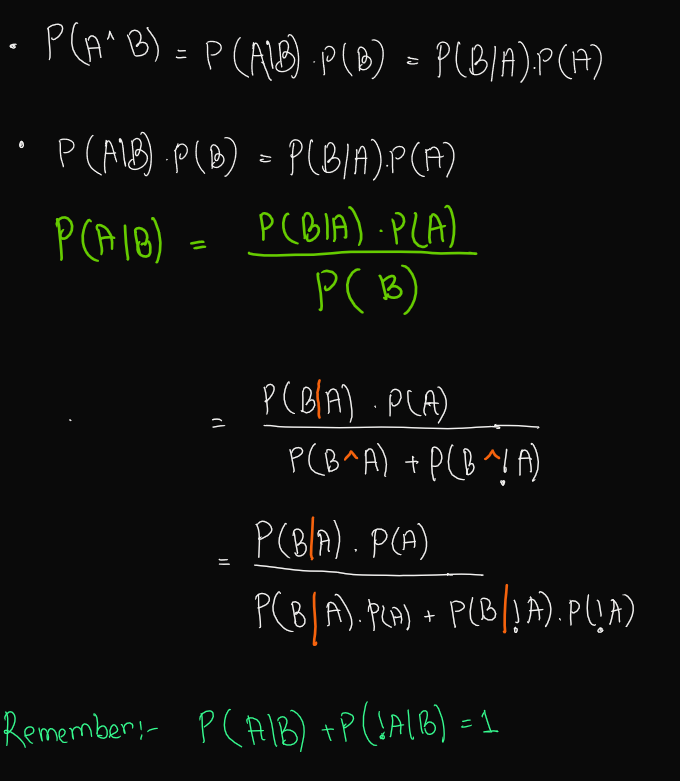 • P(A^B) = P(A|B).P(B) = P(B|A).P(A)
• P(A|B).P(B) = P(B|A).P(A)
P(A|B) = P(B|A).P(A)
P(B)
= P(B|A).P(A)
P(B^A) + P(B^!A)
= P(B|A).P(A)
P(B|A).P(A) + P(B|!A).P(!A)
Remember:- P(A|B) + P(!A|B) = 1